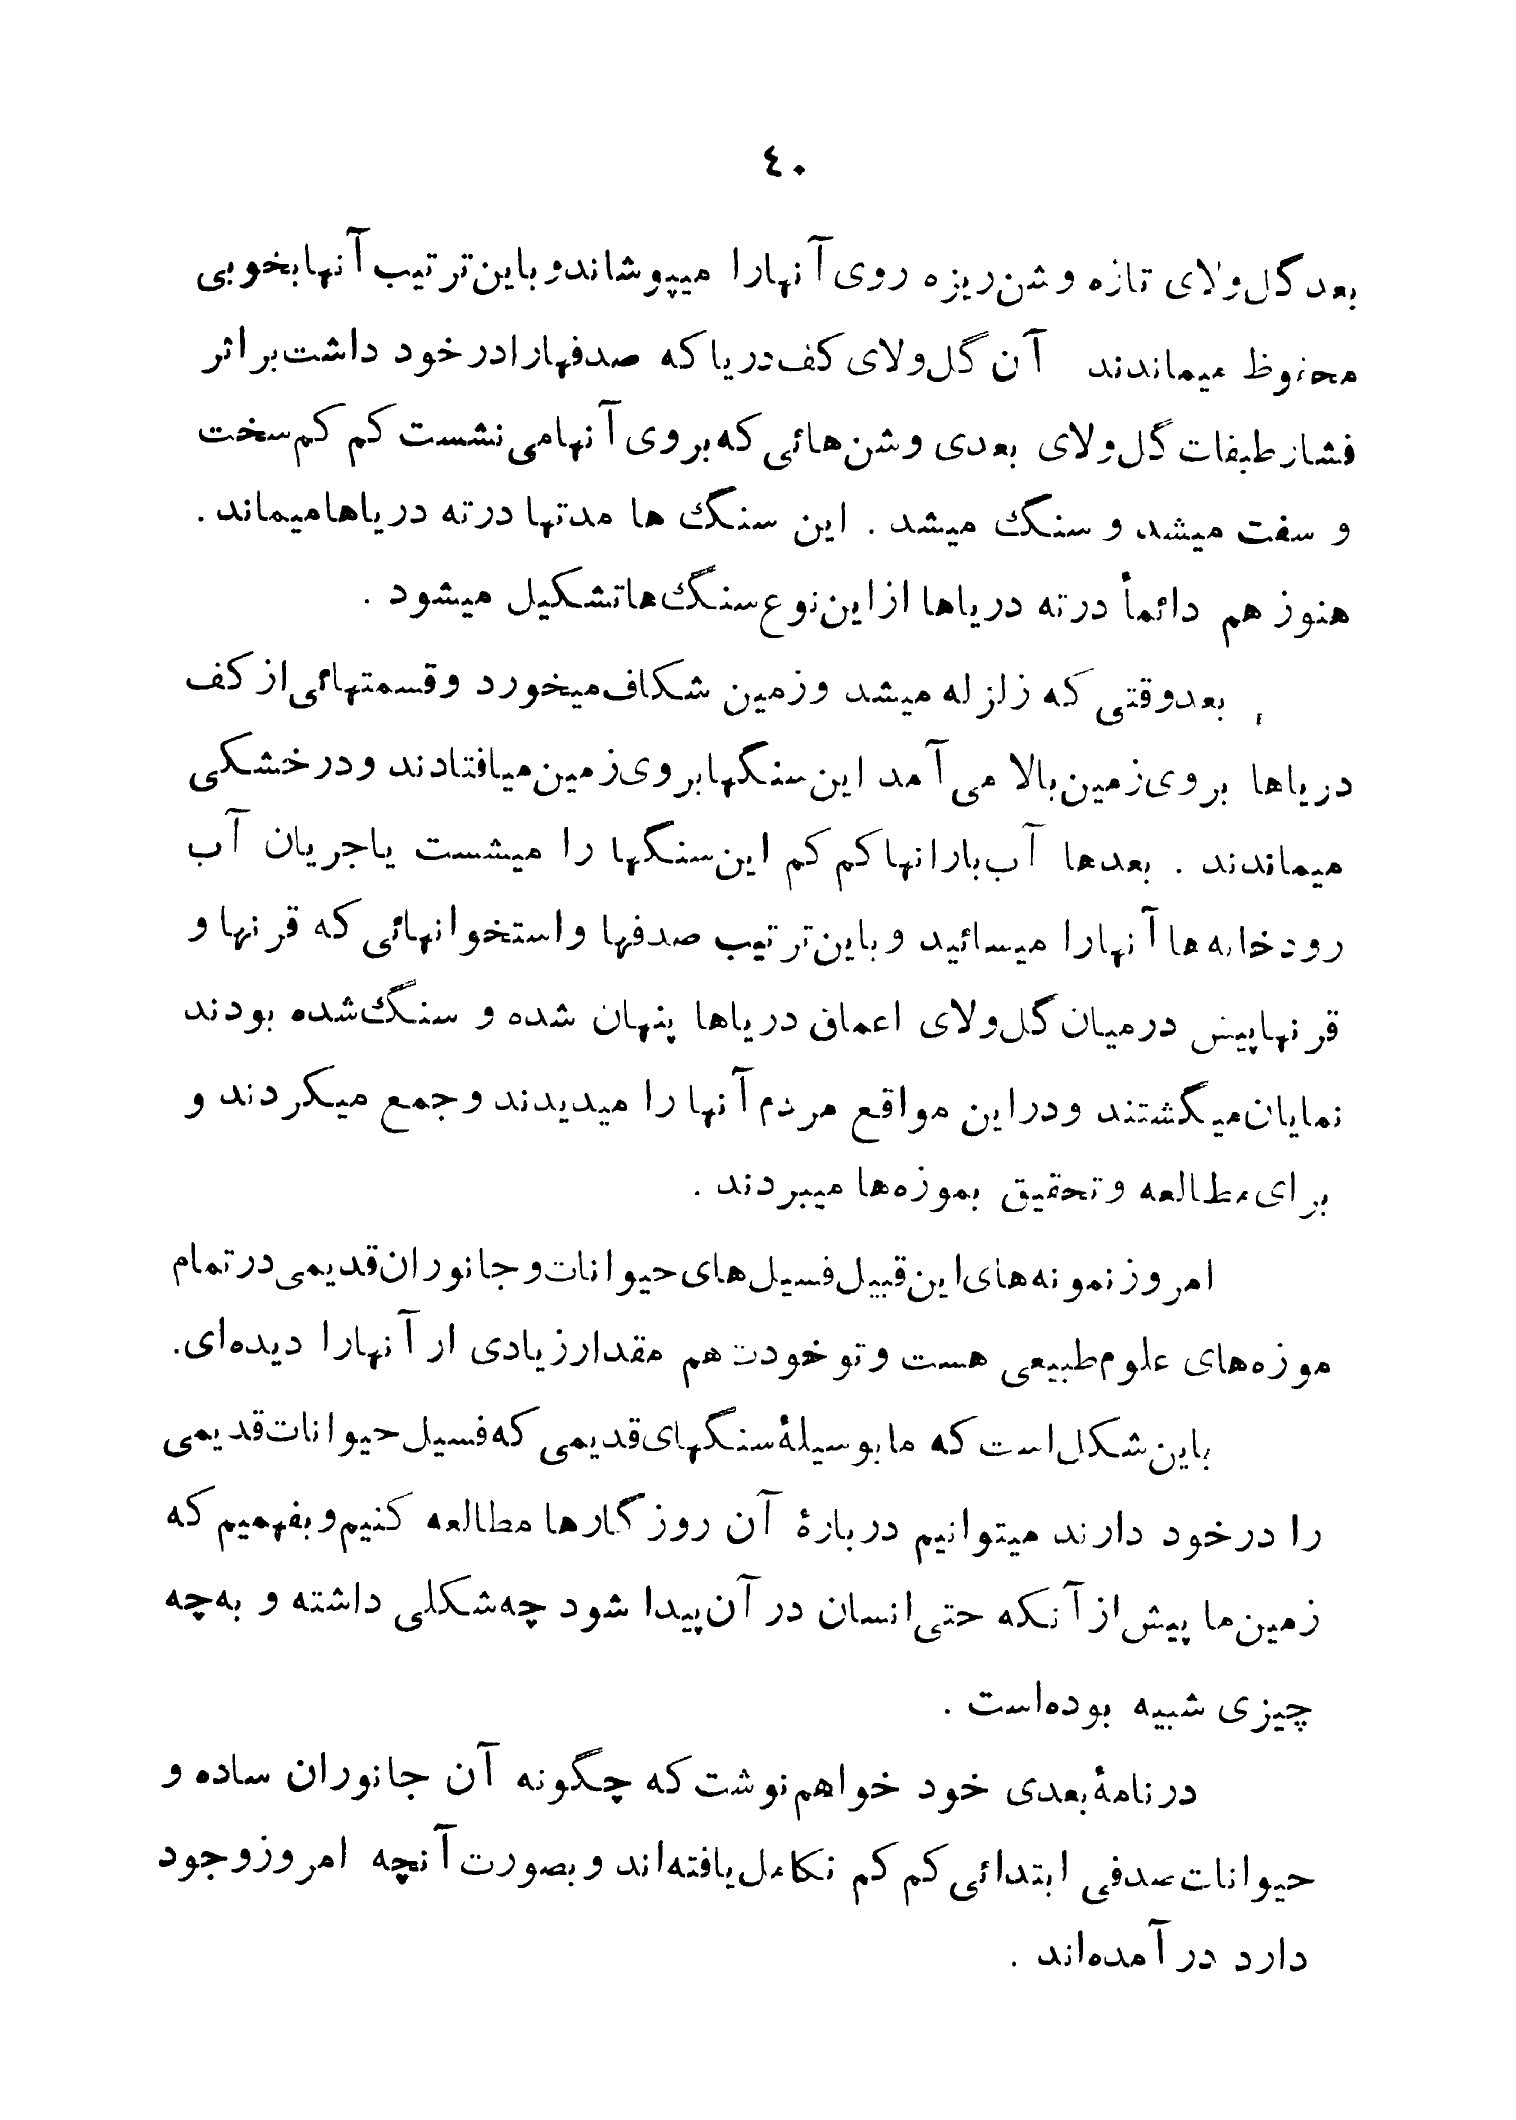 ٤٠
بعد گل‌ولای تازه و شن‌ریزه روی آنهارا میپوشاند و باین‌ترتیب آنها بخوبی
محفوظ میماندند آن گل‌ولای کف‌دریا که صدفهارا در خود داشت بر اثر
فشار طبقات گل‌ولای بعدی و شن‌هائی که بروی آنها می‌نشست کم کم سخت
و سفت میشد و سنگ میشد . این سنگ ها مدتها درته دریاها میماند .
هنوز هم دائماً درته دریاها ازاین‌نوع سنگ‌ها تشکیل میشود .
بعد وقتی که زلزله میشد و زمین شکاف میخورد و قسمتهائی از کف
دریاها بروی‌زمین بالا می‌آمد این سنگها بروی زمین میافتادند و درخشکی
میماندند . بعدها آب بارانها کم کم این سنگها را میشست یا جریان آب
رودخانه‌ها آنهارا میسائید و باین‌ترتیب صدفها و استخوانهائی که قرنها و
قرنها پیش درمیان گل‌ولای اعماق دریاها پنهان شده و سنگ شده بودند
نمایان میگشتند و دراین مواقع مردم آنها را میدیدند و جمع میکردند و
برای مطالعه و تحقیق بموزه‌ها میبردند .
امروز نمونه‌های این قبیل فسیل‌های حیوانات و جانوران قدیمی در تمام
موزه‌های علوم طبیعی هست و تو خودت هم مقدار زیادی از آنهارا دیده‌ای.
باین شکل است که ما بوسیلهٔ سنگهای قدیمی که فسیل حیوانات قدیمی
را درخود دارند میتوانیم دربارهٔ آن روزگارها مطالعه کنیم و بفهمیم که
زمین‌ما پیش از آنکه حتی انسان در آن پیدا شود چه‌شکلی داشته و به‌چه
چیزی شبیه بوده‌است .
درنامهٔ بعدی خود خواهم نوشت که چگونه آن جانوران ساده و
حیوانات صدفی ابتدائی کم کم تکامل یافته‌اند و بصورت آنچه امروز وجود
دارد در آمده‌اند .